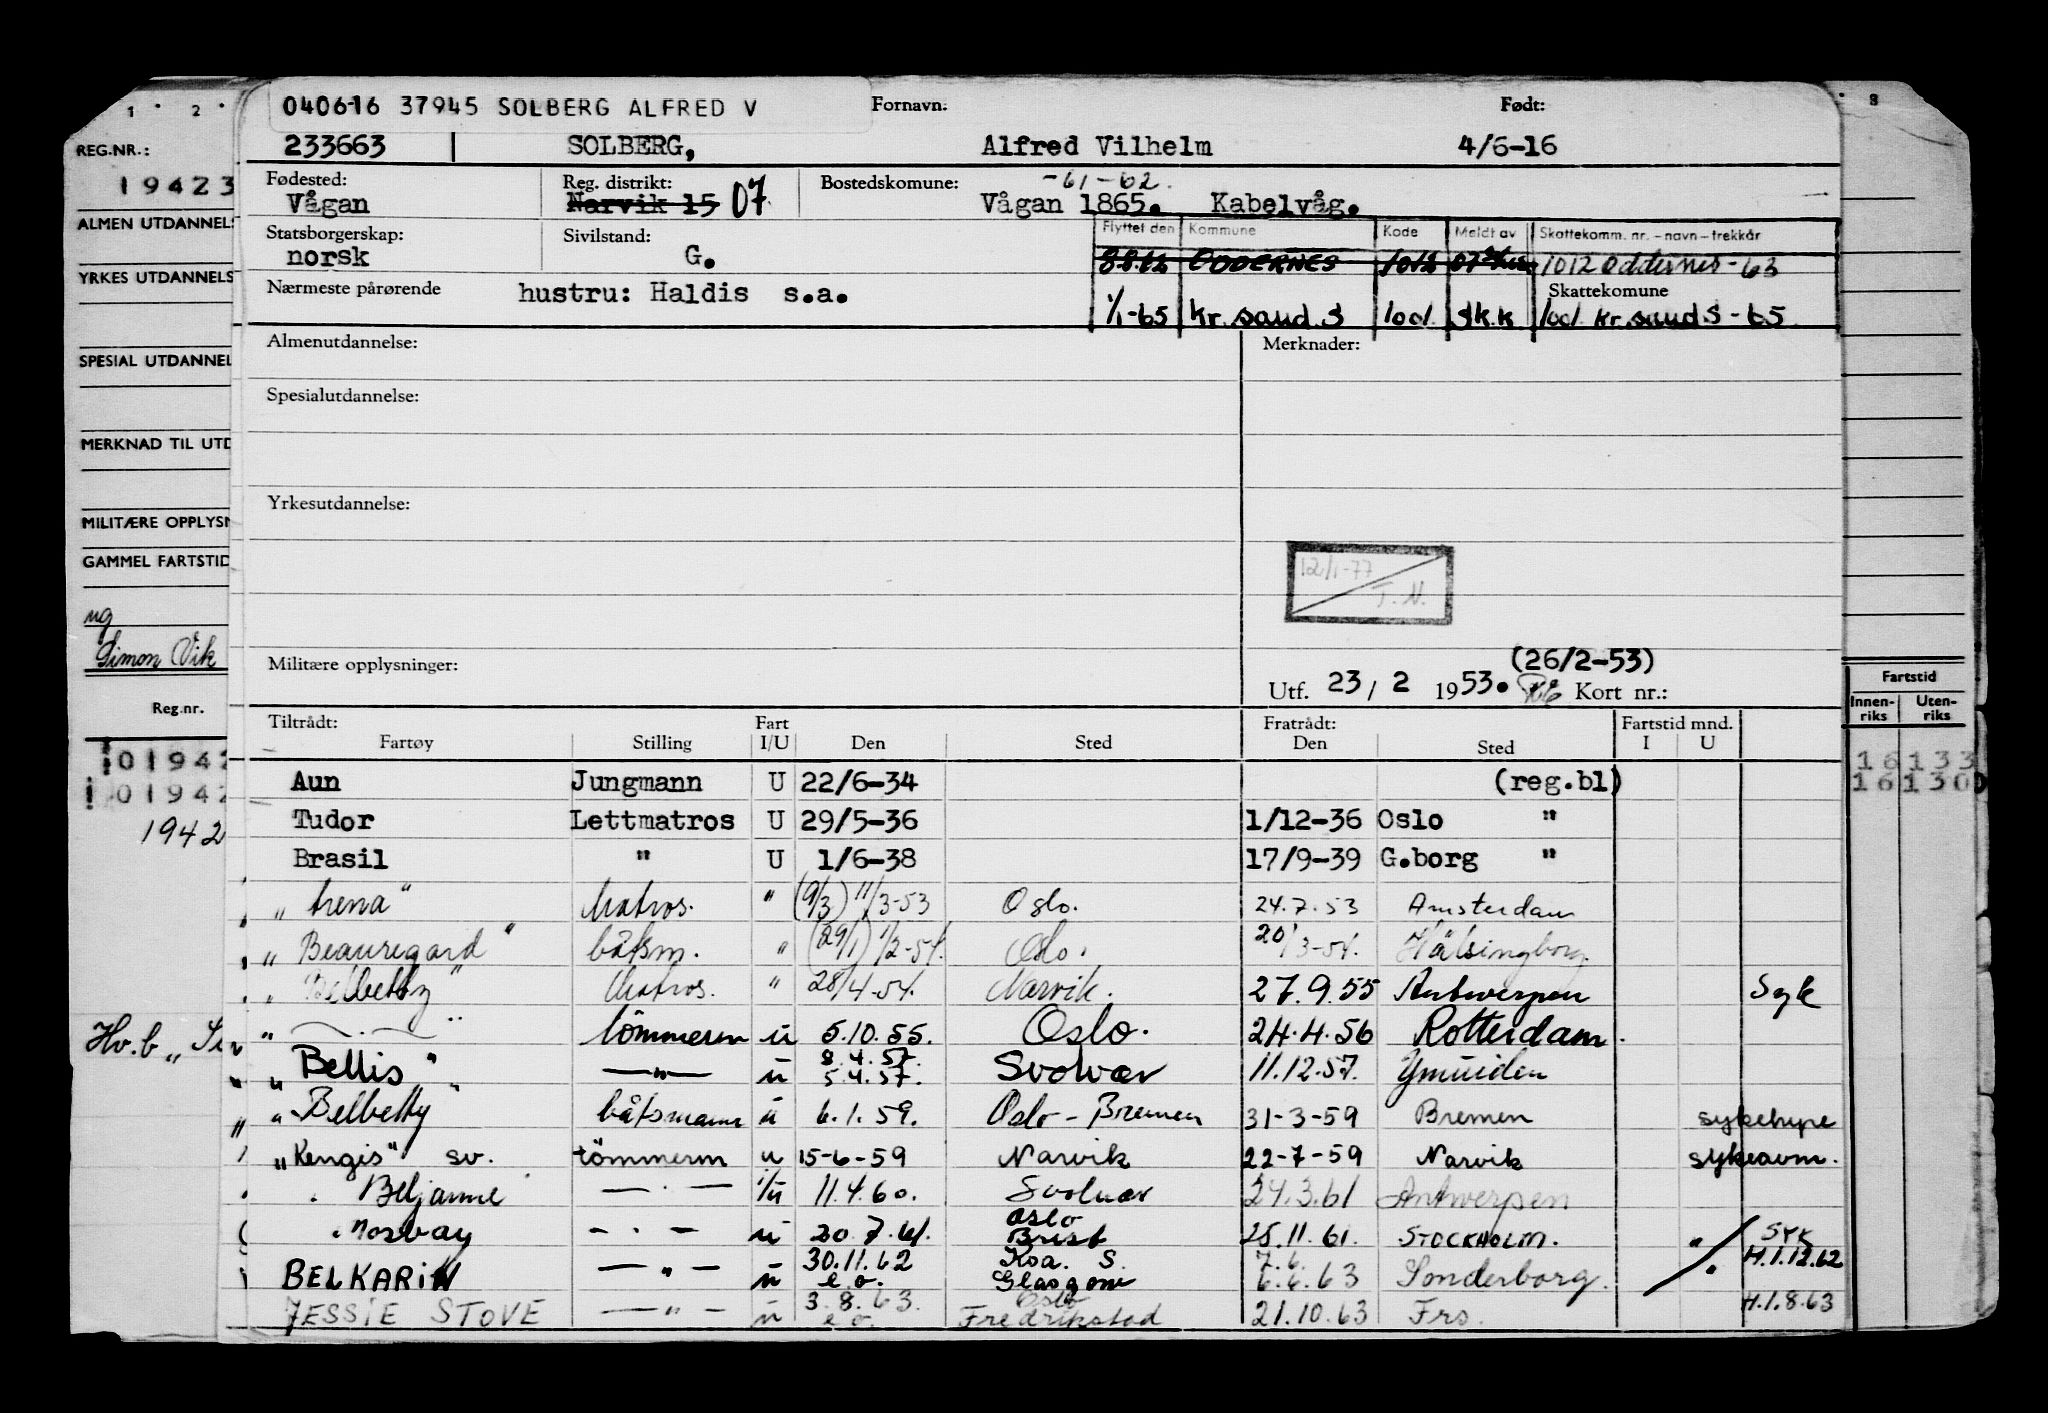 1 2 8
REG.NR.:
19423
ALMEN UTDANNELS
YRKES UTDANNELS
SPESIAL UTDANNEL
MERKNAD TIL UTD
MILITÆRE OPPLYSN
GAMMEL FARTSTID
ug
Simon Vik
Reg.nr.
01942
01942
1942
Hv.b
040616 37945 SOLBERG ALFRED V Fornavn: Født:
233663 SOLBERG, Alfred Vilhelm 4/6-16
Fødested: Reg. distrikt: Bostedskomune: -61-62.
Vågan Narvik 15 07 Vågan 1865. Kabelvåg.
Statsborgerskap: Sivilstand: Flyttet den Kommune Kode Meldt av Skattekomm. nr. -navn-trekkår
norsk G. 8.8.62 ODDERNES 1012 07 1012 Oddernes-63
Nærmeste pårørende hustru: Haldis s.a. Skattekomune
1/1-65 kr.sand.S 1001. Sk.k 1001 kr.sand S-65
Almenutdannelse: Merknader:
Spesialutdannelse:
Yrkesutdannelse:
12/1-77
T.N.
Militære opplysninger: (26/2-53)
Utf. 23/2 1953. Kort nr.:
Tiltrådt: Fart Fratrådt: Fartstid mnd.
Fartøy Stilling I/U Den Sted Den Sted I U
Aun Jungmann U 22/6-34 (reg.bl)
Tudor Lettmatros U 29/5-36 1/12-36 Oslo "
Brasil " U 1/6-38 17/9-39 G.borg "
Matros. " (9/3) 11/3-53 Oslo. 24.7.53 Amsterdam
" Beauregard" båtsm. " (29/1) 1/2-54. Oslo. 20/3-54. Hälsingborg
" Belbetty" Matros. " 28/4-54. Narvik. 27.9.55 Antwerpen Syk
" — . — " tömmerm u 5.10.55. Oslo. 24.4.56 Rotterdam.
8.4.57.
" Bellis" — " — u 5.4.57. Svolvær 11.12.57. Ymuiden
" Belbetty" båtsmann u 6.1.59. Oslo - Bremen 31-3-59 Bremen sykehype
"Kengis" sv. tömmerm u 15-6-59 Narvik 22-7-59 Narvik sykeavm.
Beljanne — . — i/u 11.4.60. Svolvær 24.3.61 Antwerpen
Oslo
Norway — . — u 20.7.61. Brist 25.11.61. STOCKHOLM. " Syk
30.11.62 Koa. S. 7.6. H.1.12.62
BELKARIN — " — u e.o. Glasgow 6.6.63 Sonderborg.
3.8.63. Oslo H.1.8.63
JESSIE STOVE — " — u e.o. Fredrikstad 21.10.63 Frs.
Fartstid
Innen-riks Uten-riks
16133
16130